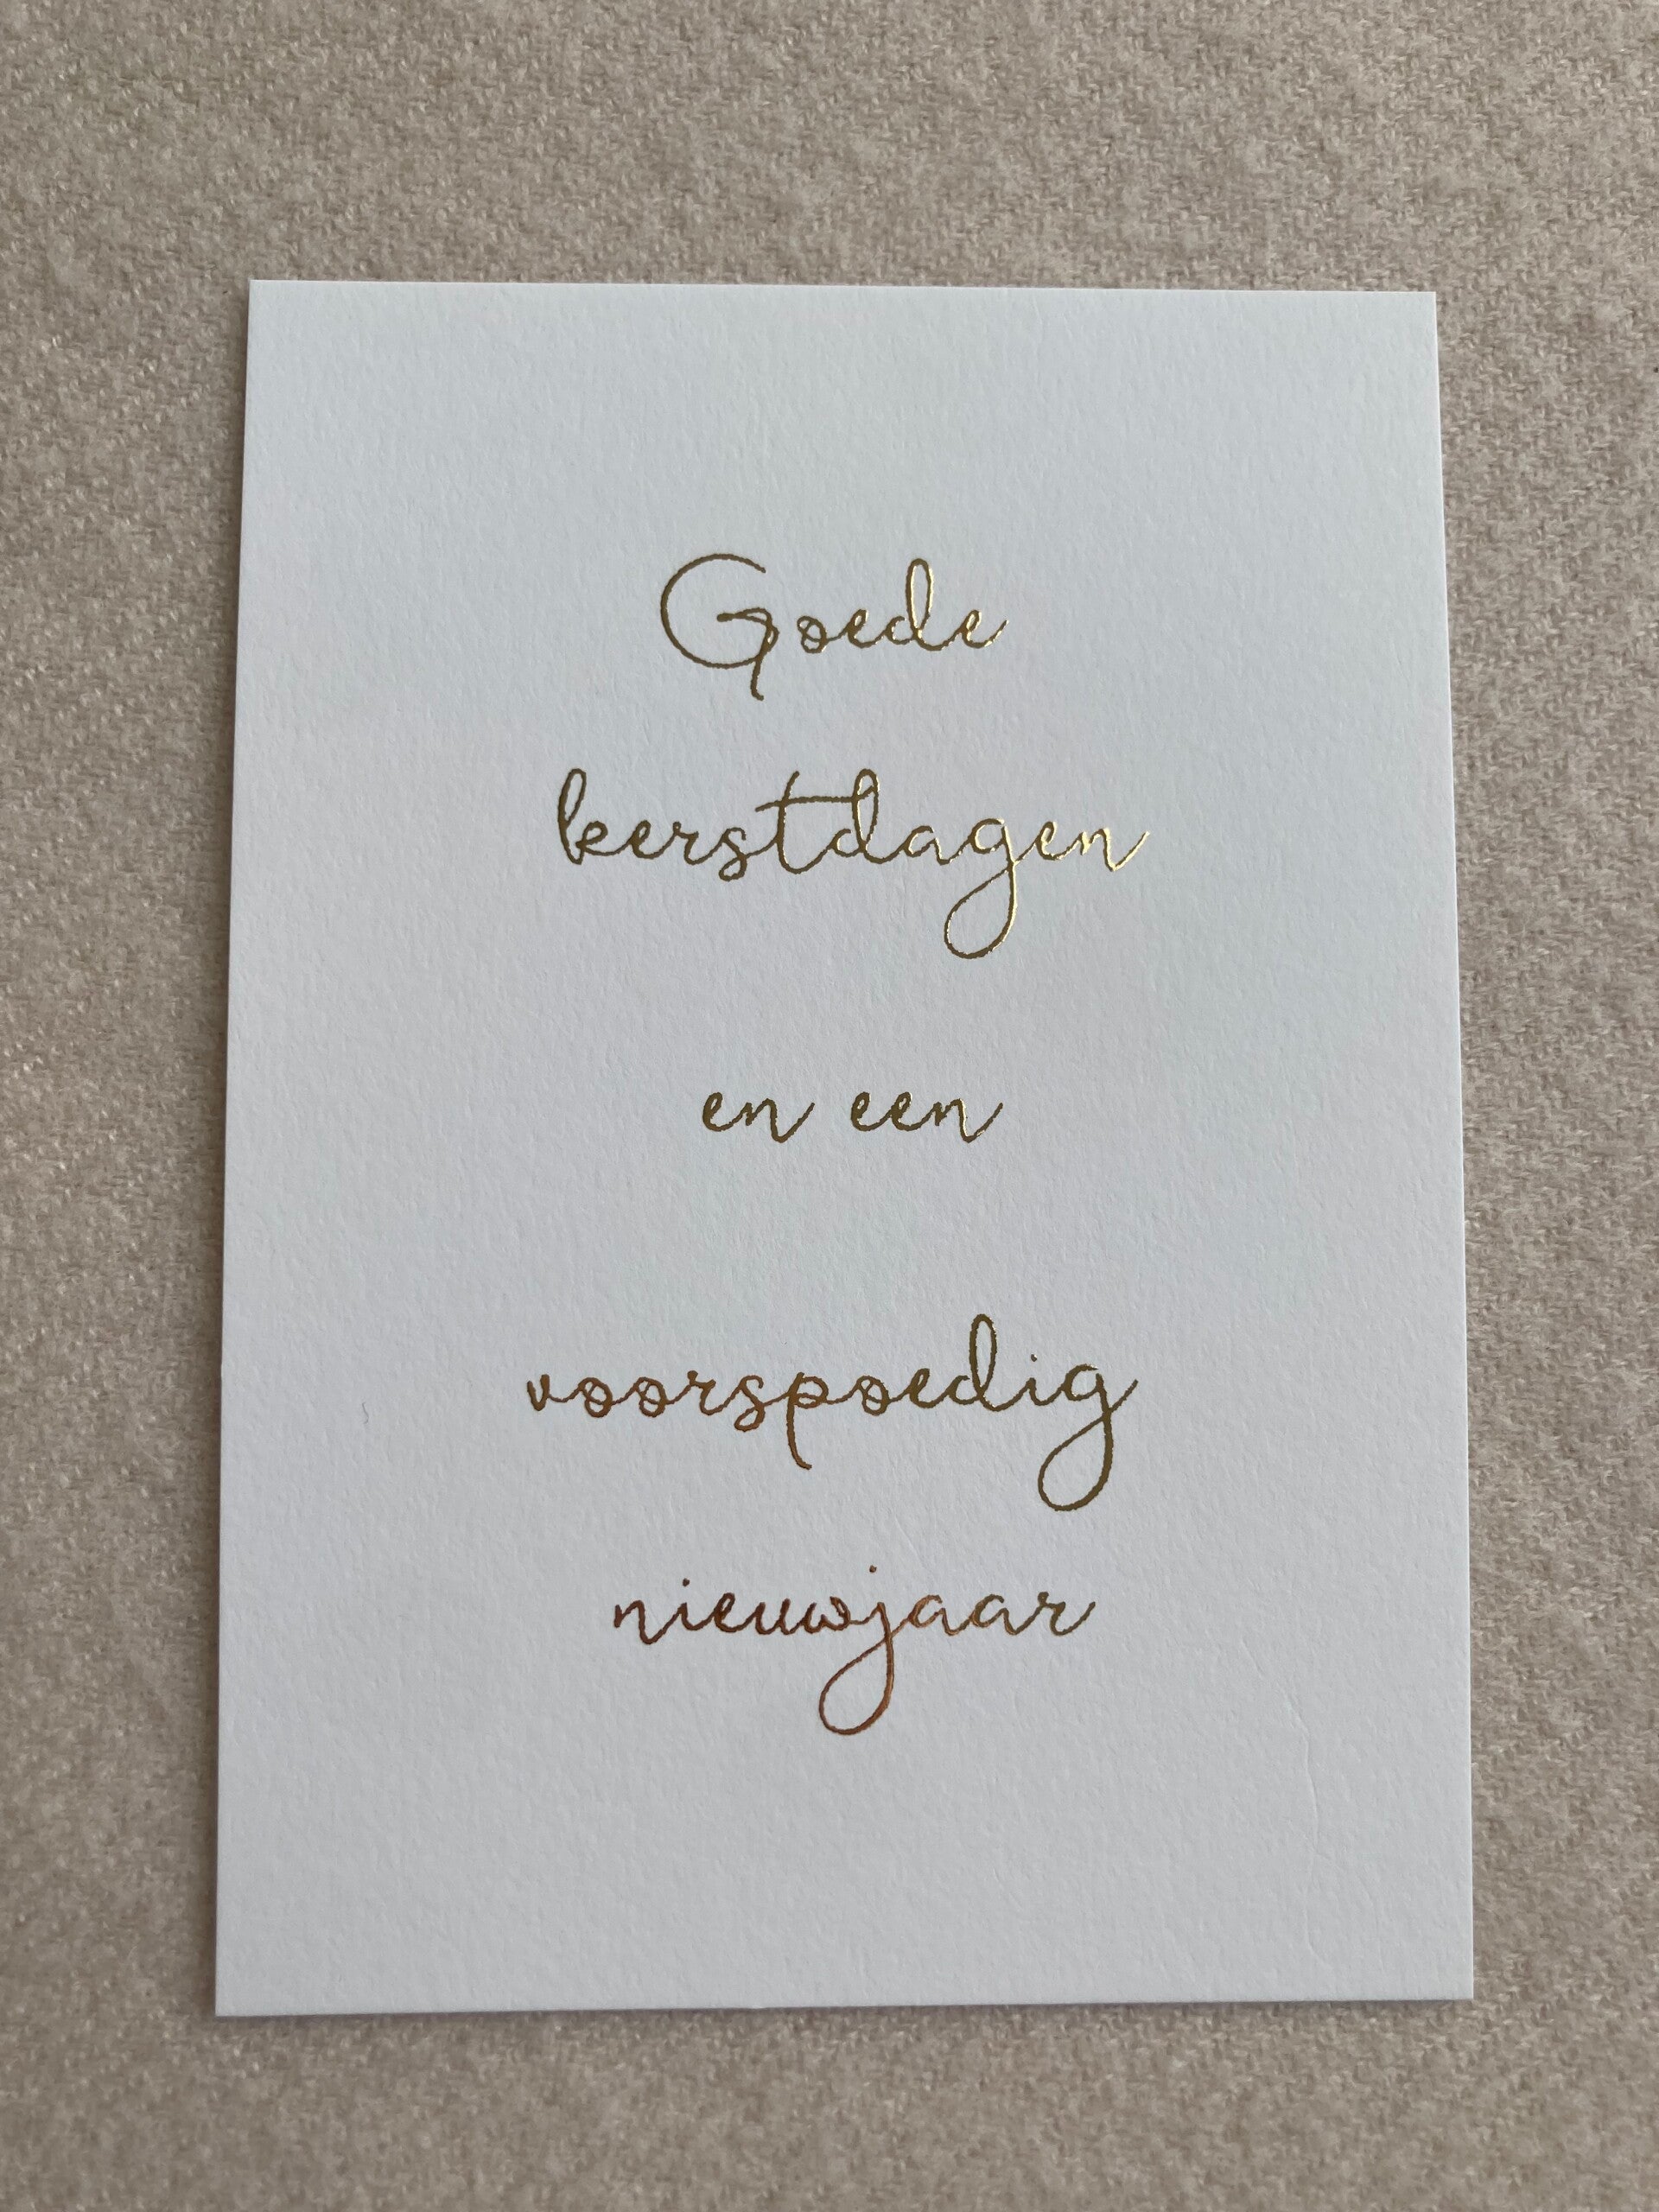 Goede
kerstdagen
en een
voorspoedig
nieuwjaar